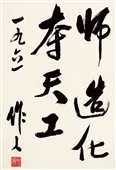 师造化
夺天工
一九六一
作人